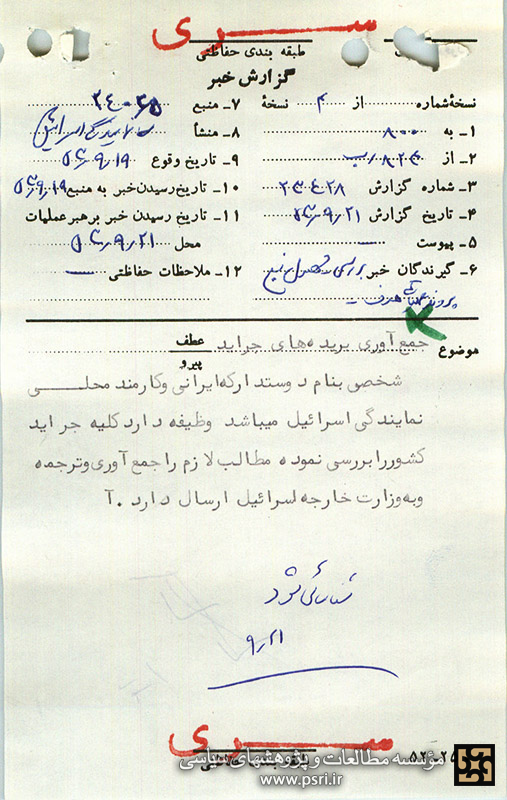 سری
طبقه بندی حفاظتی
گزارش خبر
نسخهٔ شماره از ۴ نسخهٔ
۱- به ۸۰۰
۲- از
۳- شماره گزارش ۲۳۴۲۸
۴- تاریخ گزارش ۵۳/۹/۲۱
۵- پیوست —
۶- گیرندگان خبر
۷- منبع
۸- منشأ نمایندگی اسرائیل
۹- تاریخ وقوع ۵۳/۹/۱۹
۱۰- تاریخ رسیدن خبر به منبع ۵۳/۹/۱۹
۱۱- تاریخ رسیدن خبر برهبر عملیات
محل ۵۳/۹/۲۱
۱۲- ملاحظات حفاظتی —
موضوع جمع آوری بریده های جراید عطف
پیرو
شخصی بنام دوستدار که ایرانی و کارمند محلی
نمایندگی اسرائیل میباشد وظیفه دارد کلیه جراید
کشور را بررسی نموده مطالب لازم را جمع آوری و ترجمه
و به وزارت خارجه اسرائیل ارسال دارد .آ
شناسائی شود
۹/۲۱
سری
مؤسسه مطالعات و پژوهشهای سیاسی
www.psri.ir